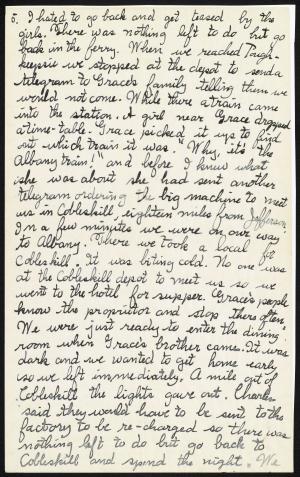 5. I hated to go back and get teased by the
girls. There was nothing left to do but go
back in the ferry. When we reached Pough-
keepsie we stopped at the depot to send a
telegram to Grace's family telling them we
would not come. While there a train came
into the station. A girl near Grace dropped
a time-table. Grace picked it up to find
out which train it was. "Why, it's the
Albany train!" and before I knew what
she was about she had sent another
telegram ordering the big machine to meet
us in Cobleskill, eighteen miles from Jefferson.
In a few minutes we were on our way
to Albany. There we took a local for
Cobleskill. It was biting cold. No one was
at the Cobleskill depot to meet us so we
went to the hotel for supper. Grace's people
know the proprietor and stop there often.
We were just ready to enter the dining
room when Grace's brother came. It was
dark and we wanted to get home early
so we left immediately. A mile out of
Cobleskill the lights gave out. Charles
said they would have to be sent to the
factory to be re-charged so there was
nothing left to do but go back to
Cobleskill and spend the night. We